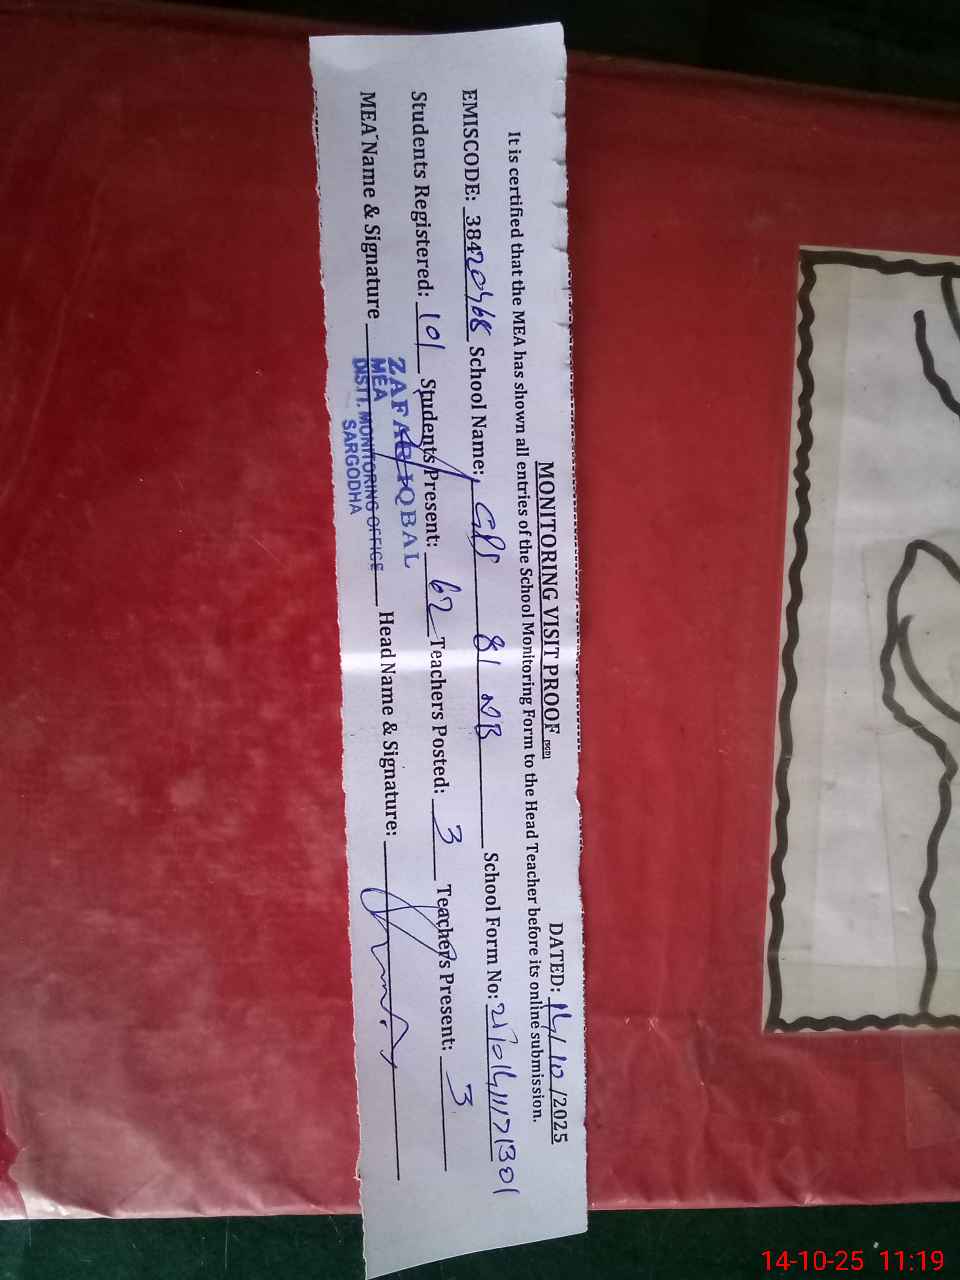 MONITORING VISIT PROOF (SGD) DATED: 14/10/2025
It is certified that the MEA has shown all entries of the School Monitoring Form to the Head Teacher before its online submission.
EMISCODE: 38420468 School Name: GPS 81 NB School Form No:
Students Registered: 101 Students Present: 62 Teachers Posted: 3 Teachers Present: 3
MEA Name & Signature Head Name & Signature:
ZAFAR IQBAL
MEA
DISTT. MONITORING OFFICE
SARGODHA
14-10-25 11:19